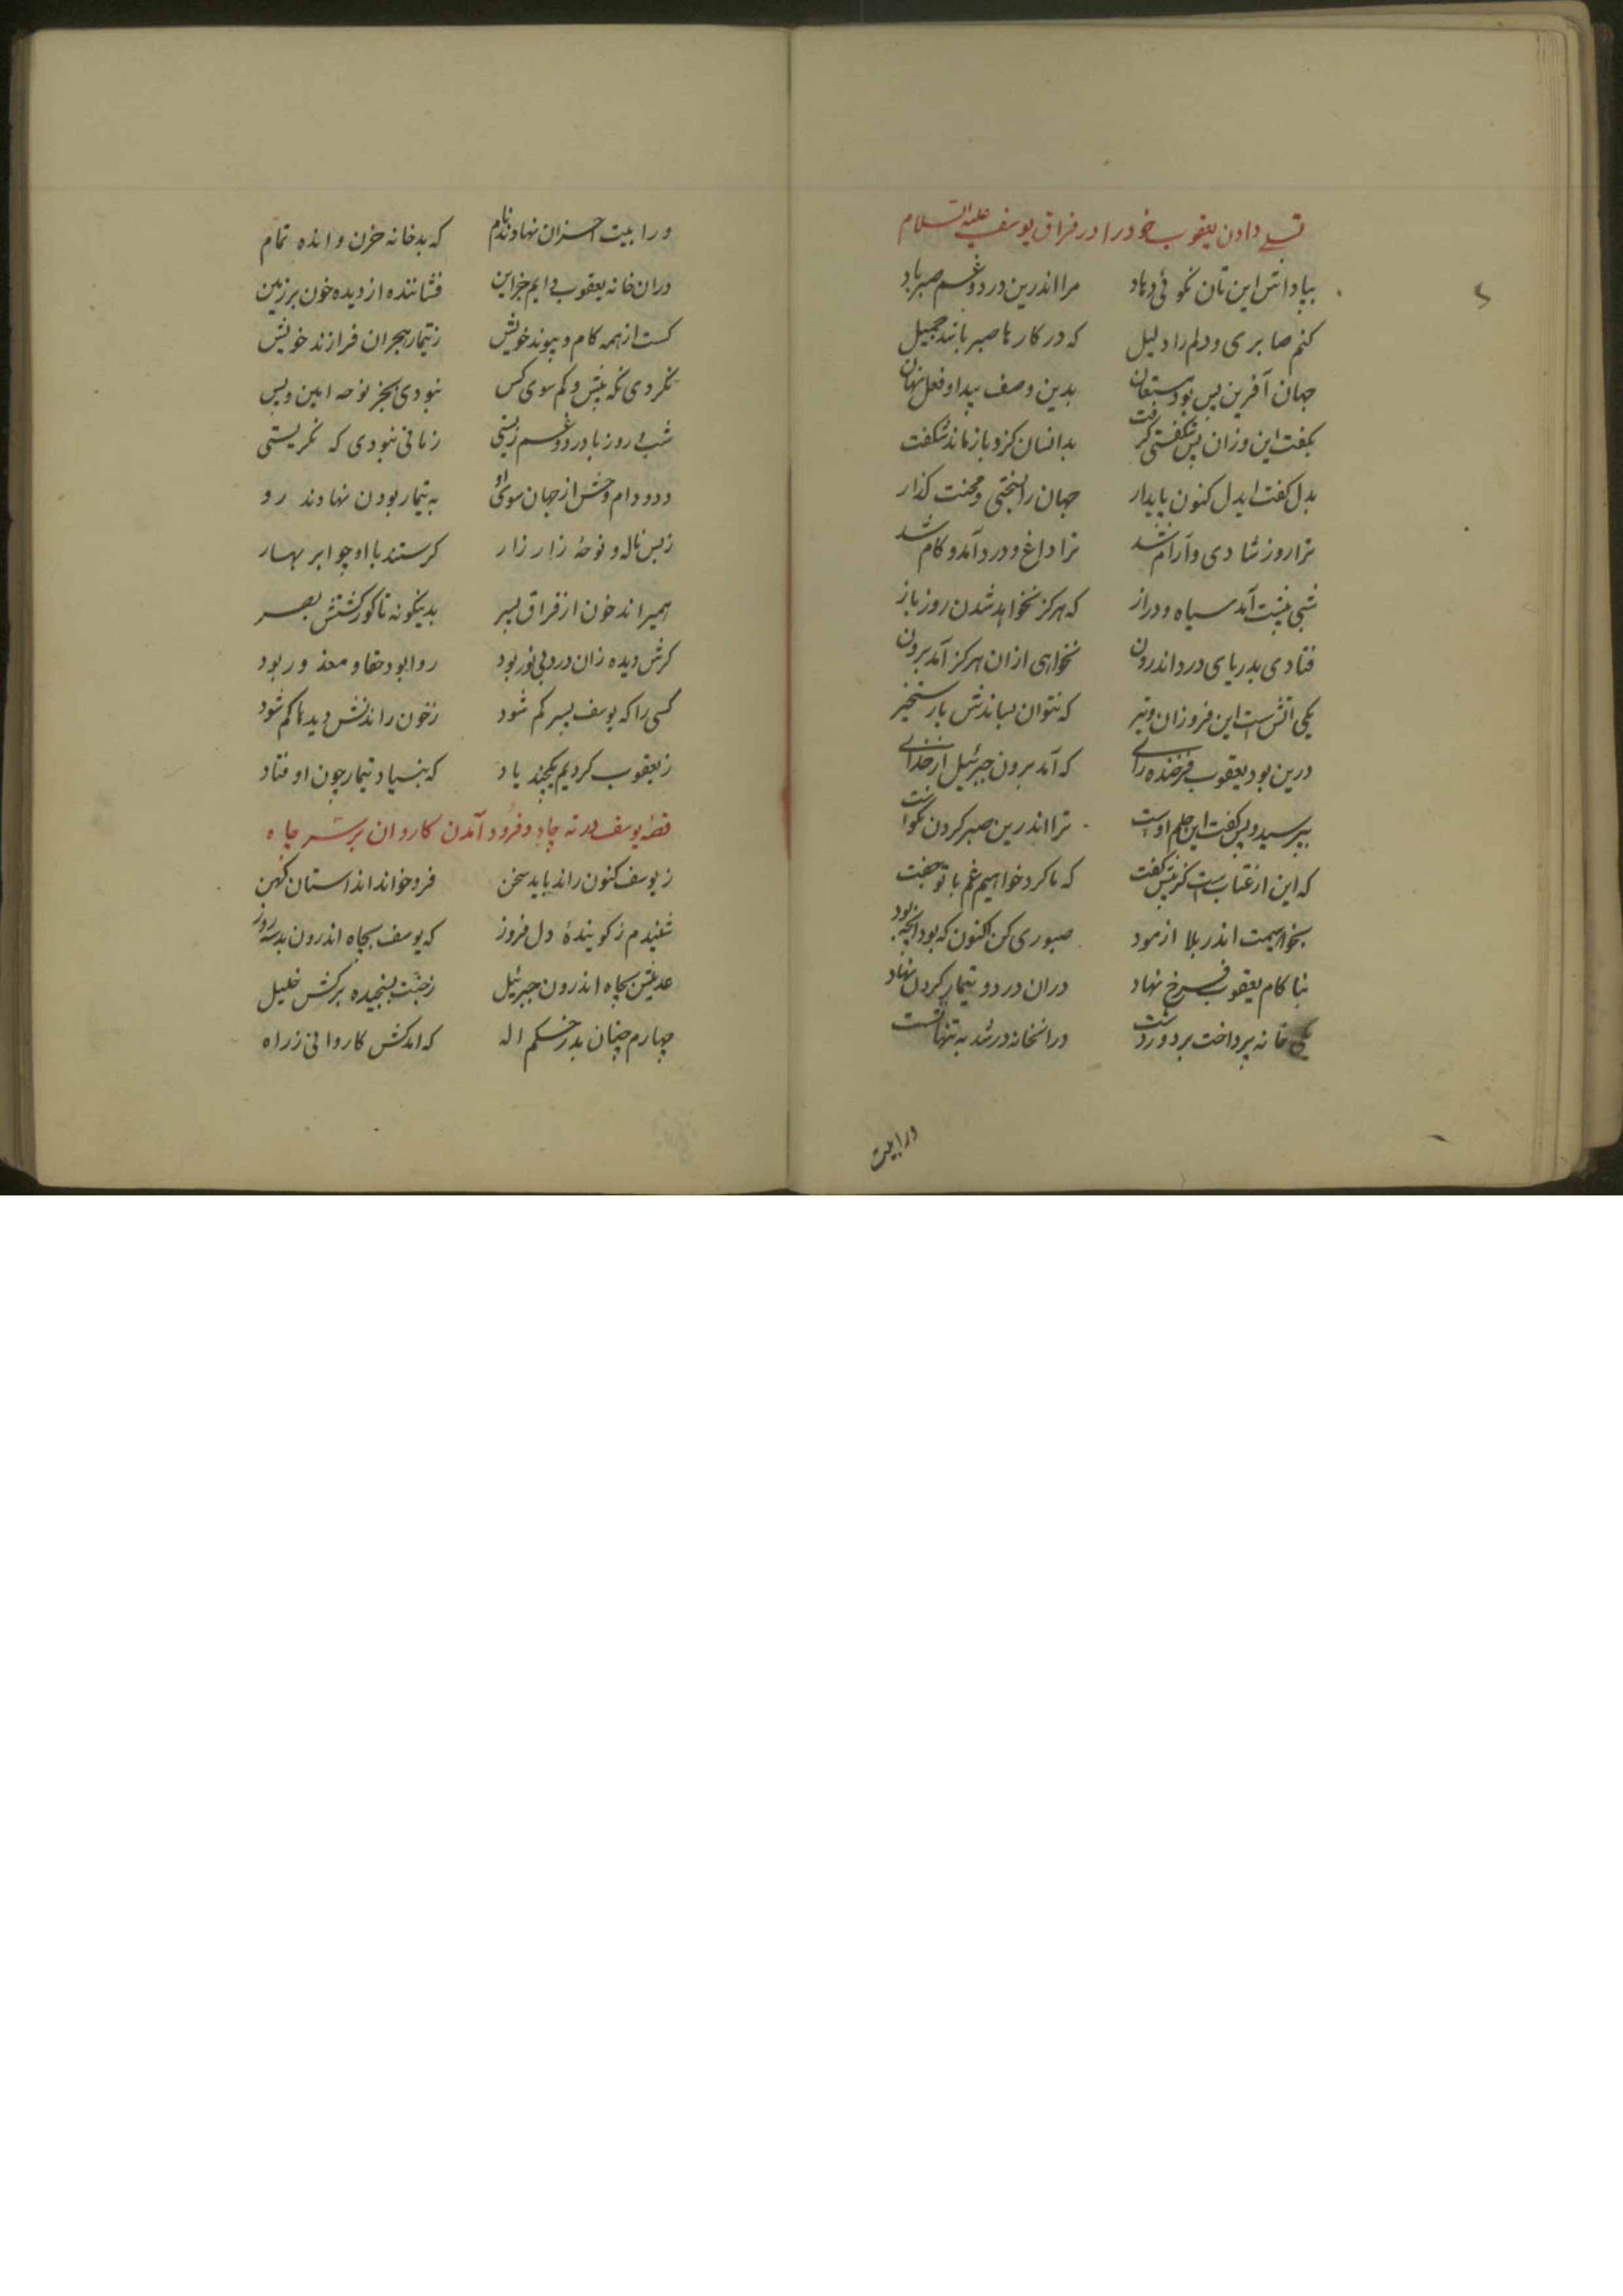 تسلی دادن یعقوب خود را در فراق یوسف علیه السلام
بپاداش این تان نکوئی دهاد مرا اندرین درد و غم صبر باد
کنم صابری و دلم را دلیل که در کارها صبر باشد جمیل
جهان آفرین بس بود مستعان بدین وصف پیدا و فعل نهان
بگفت این وزان پس شگفتی گرفت بدانسان کزو باز ماند شگفت
بدل گفت ایدل کنون پایدار جهان را بسختی و محنت گذار
ترا روز شادی و آرام شد ترا داغ و درد آمد و کام شد
شبی پیشت آمد سیاه و دراز که هرگز نخواهد شدن روز باز
فتادی بدریای درد اندرون نخواهی ازان هرگز آمد برون
یکی آتش است این فروزان و تیز که نتوان نشاندنش تا رستخیز
درین بود یعقوب فرخنده رای که آمد برون جبرئیل از خدای
بپرسید و پس گفت این حکم اوست ترا اندرین صبر کردن نکوست
که این از عتاب است کز پیش گفت که ما کرد خواهیم غم با تو جفت
بخواهیمت اندر بلا ازمود صبوری کن اکنون که بود آنچه بود
بناکام یعقوب فرخ نهاد دران درد و تیمار گردن نهاد
یکی خانه پرداخت بر دور دشت درانخانه در شد به تنها نشست
ورا بیت
ورا بیت احزان نهادند نام که بد خانه حزن و انده تمام
دران خانه یعقوب دایم حزین فشاننده از دیده خون بر زمین
گسست از همه کام و پیوند خویش ز تیمار هجران فرزند خویش
نکردی نگه بیش و کم سوی کس نبودی بجز نوحه آیین و بس
شب و روز با درد و غم زیستی زمانی نبودی که نگریستی
دد و دام و وحش از جهان سوی او به تیمار بودن نهادند رو
ز بس ناله و نوحهٔ زار زار گرستند با او چو ابر بهار
همیراند خون از فراق پسر بدینگونه تا کور گشتش بصر
گرش دیده زان درد بی نور بود روا بود حقا و معذور بود
کسی را که یوسف پسر گم شود ز خون راندنش دیدها کم شود
ز یعقوب کردیم یکچند یاد که بنیاد تیمار چون او فتاد
قصهٔ یوسف در ته چاه و فرود آمدن کاروان بر سر چاه
ز یوسف کنون راند باید سخن فرو خواند از داستان کهن
شنیدم ز گویندهٔ دل فروز که یوسف بچاه اندرون بد سه روز
عدیلش بچاه اندرون جبرئیل
چهارم چنان بد ز حکم اله که آمد کش کاروانی ز راه